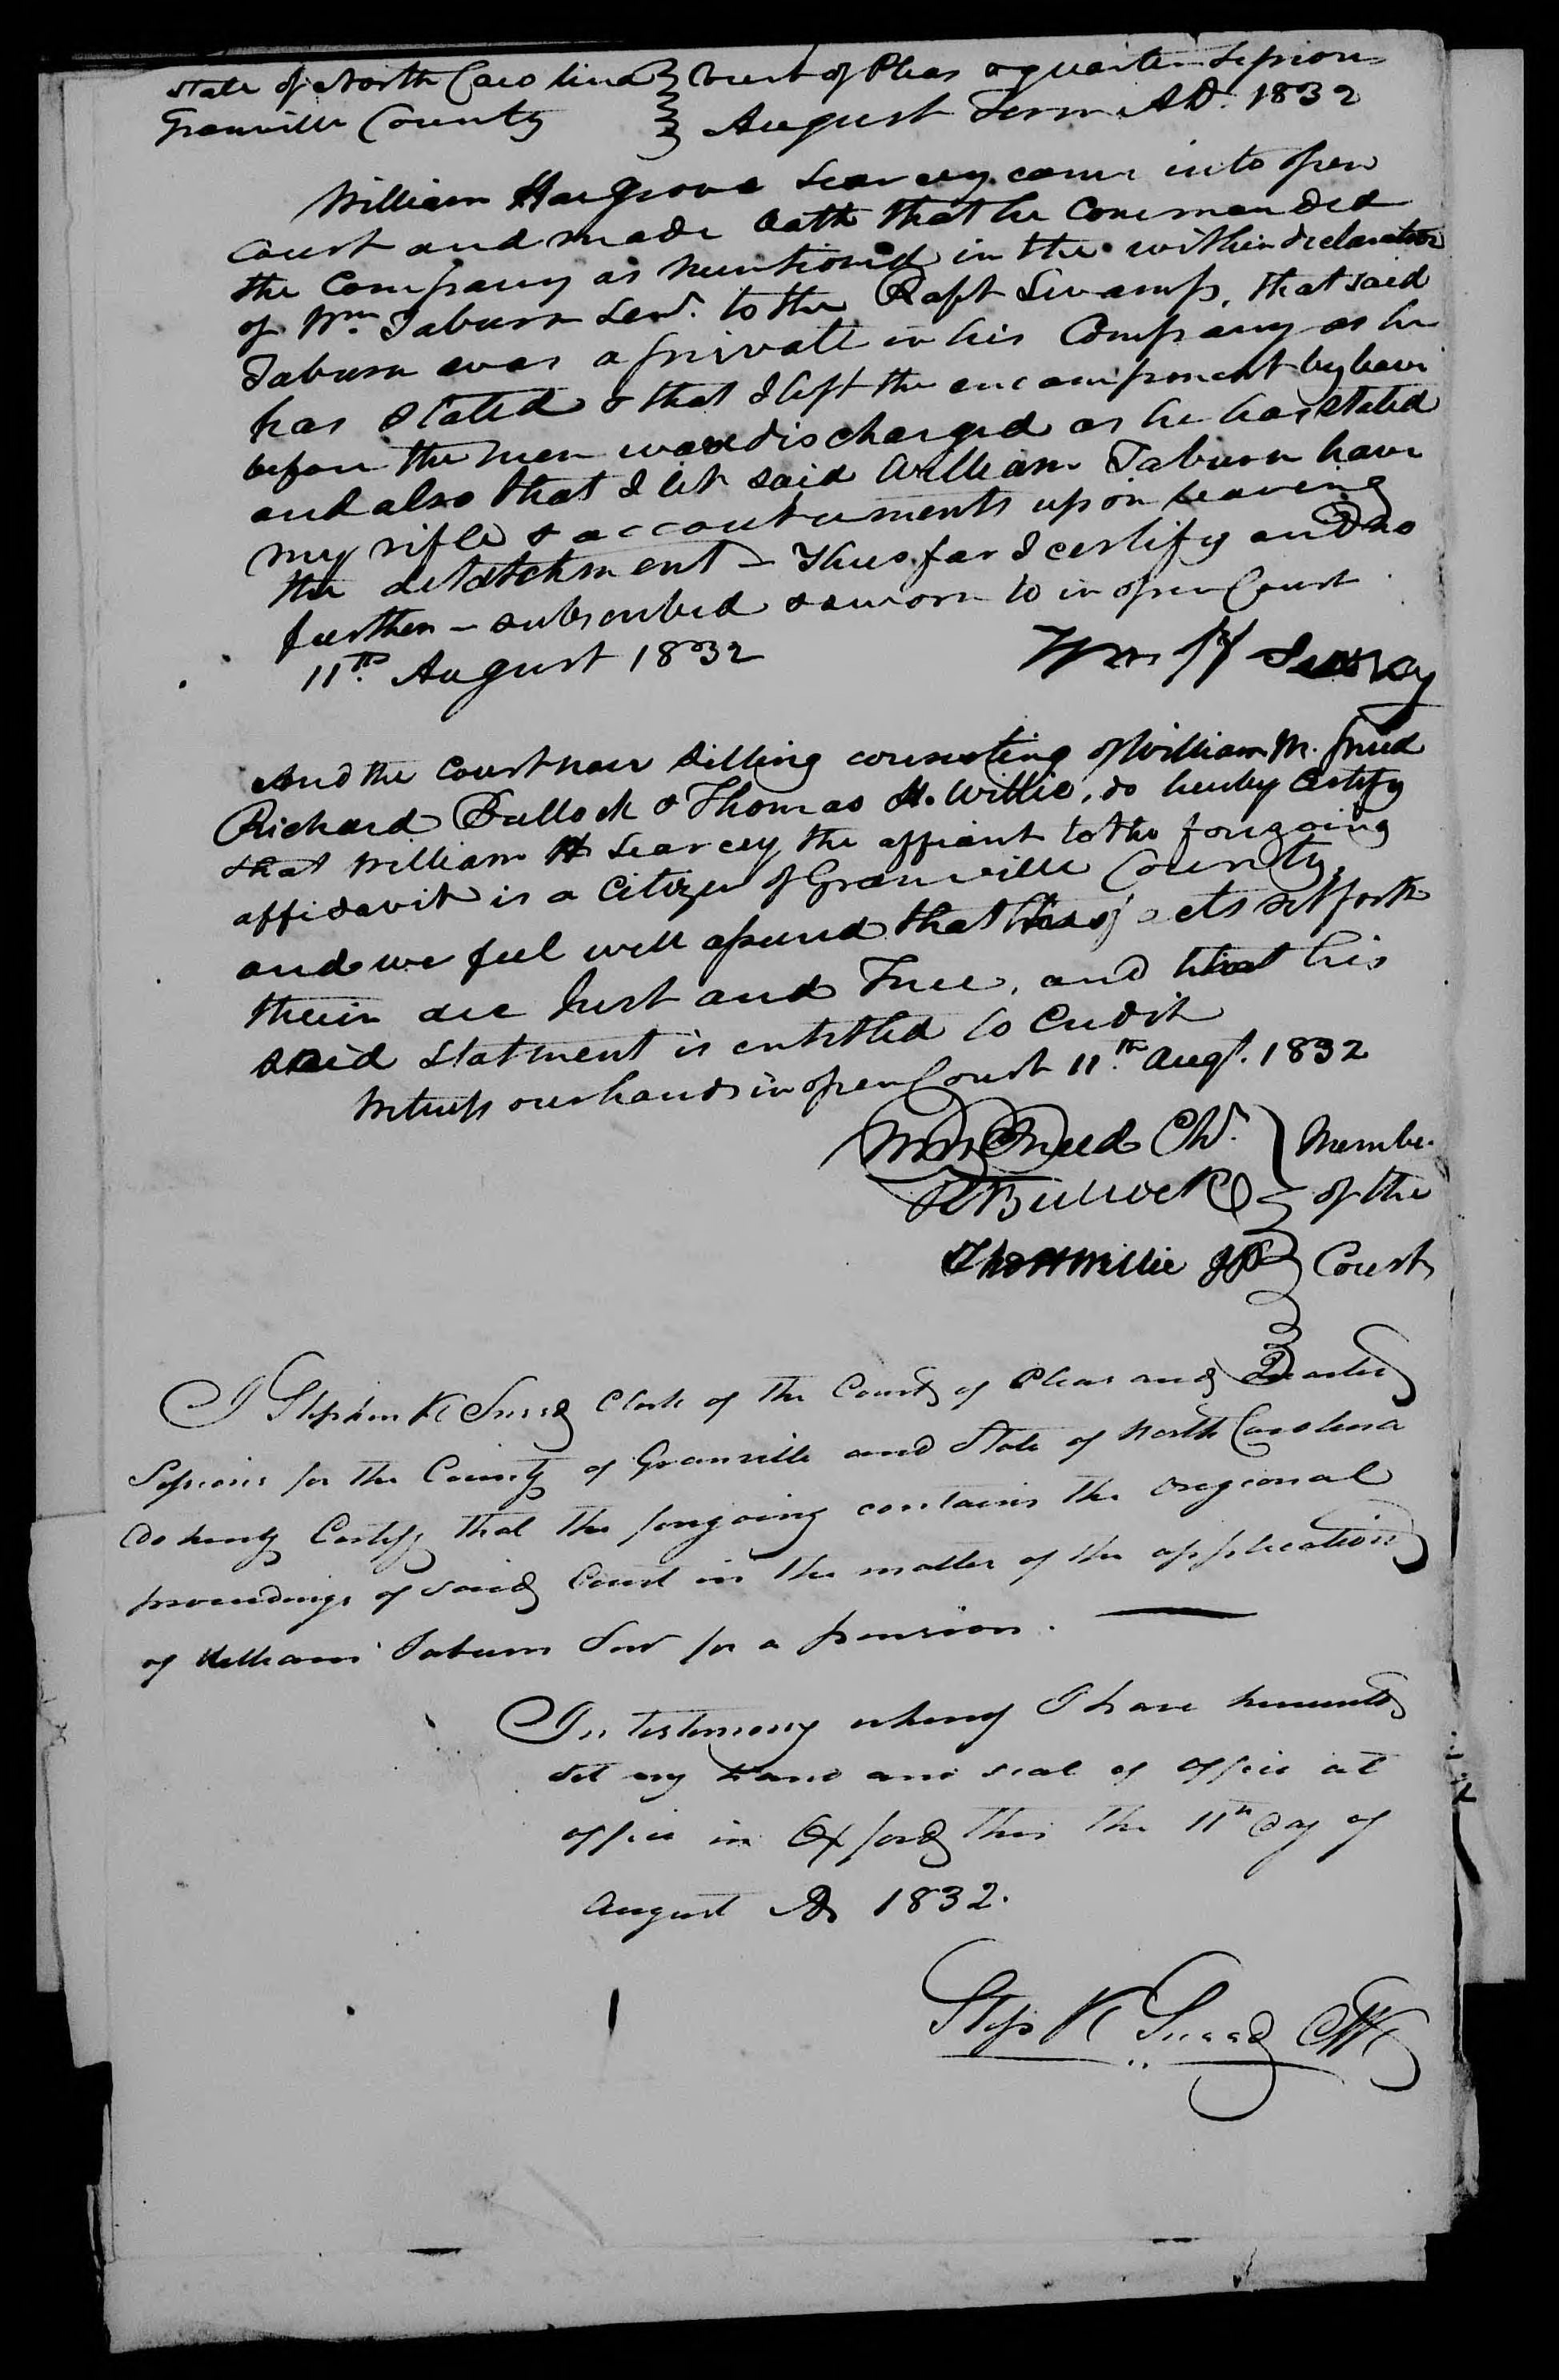 State of North Carolina } Court of Pleas & quarter Sessions
Granville County } August Term AD. 1832
William Hargrove Searcey came into open
Court and made Oath that he Commanded
the Company as mentioned in the within declaration
of Wm. Taburn Senr. to the Raft Swamp, that said
Taburn was a private in his Company as he
has Stated & that I left the encampment by leave
before the men was discharged as he has stated
and also that I let said William Taburn have
my rifle & accoutrements upon leaving
the detatchment – Thus far I certify and no
further – subscribed & sworn to in open Court
11th. August 1832
Wm H Searcy
And the Court now sitting consisting of William M. Sneed
Richard Bullock & Thomas H. Willie, do hereby Certify
that William H Searcey the affiant to the foregoing
affidavit is a Citizen of Granville County,
and we feel well assured that the facts set forth
therein are Just and True, and that his
said statment is entitled to Credit
Witness our hands in open Court 11.th Augt. 1832
Wm M Sneed Ch. } Membe.
R Bullock } of the
Tho H Willie JP } Court
I Stephen K Sneed Clerk of the Court of Pleas and Quarter
Sessions for the County of Granville and State of North Carolina
do hereby Certify that the foregoing contains the oregional
proceedings of said Court in the matter of the application
of William Taburn Senr for a pension.
In testimony whereof I have hereunto
set my hand and seal of office at
office in Oxford this the 11th day of
August AD 1832.
Step K Sneed Clk